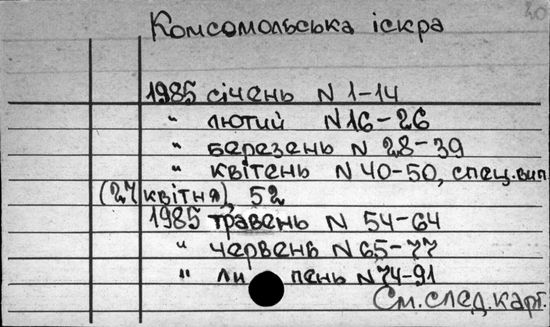 20
Комсомольська іскра
1985 січень N 1-14
" лютий N 16-26
" березень N 28-39
" квітень N 40-50, спец.вип
(27 квітня), 52
1985 травень N 54-64
" червень N 65-77
" ли пень N 74-91
См. след. карт.